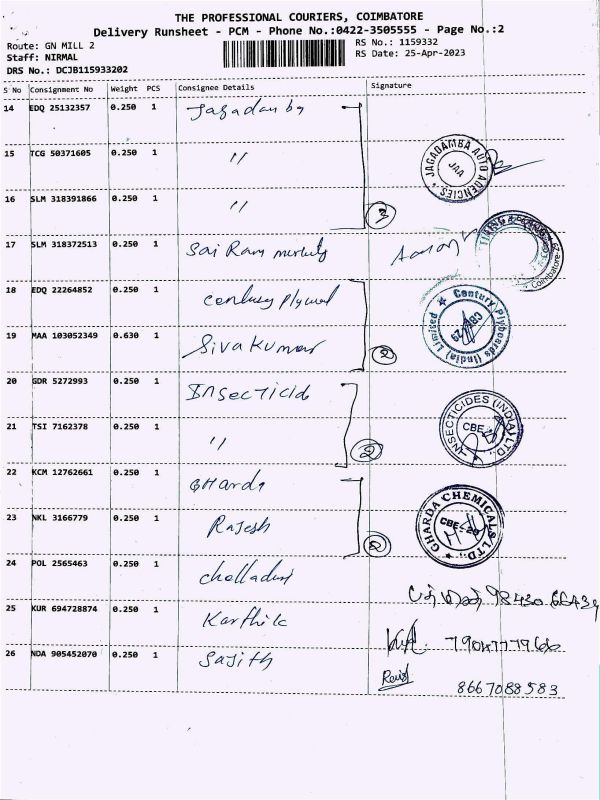 THE PROFESSIONAL COURIERS, COIMBATORE
Delivery Runsheet - PCM - Phone No.:0422-3505555 - Page No.:2
Route: GN MILL 2
Staff: NIRMAL
DRS No.: DCJB115933202
RS No.: 1159332
RS Date: 25-Apr-2023
S No Consignment No Weight PCS Consignee Details Signature
14 EDQ 25132357 0.250 1 Jagadamba
15 TCG 50371605 0.250 1 "
JAGADAMBA AUTO AGENCIES
JAA
16 SLM 318391866 0.250 1 "
3
17 SLM 318372513 0.250 1 Sai Ram
Coimbatore
18 EDQ 22264852 0.250 1 century plywood
19 MAA 103052349 0.630 1 Sivakumar
2
Century Plyboards (India) Limited
20 GDR 5272993 0.250 1 Insecticid
21 TSI 7162378 0.250 1 "
2
INSECTICIDES (INDIA) LTD.
CBE
22 KCM 12762661 0.250 1 GHarda
23 NKL 3166779 0.250 1 Rajesh
2
GHARDA CHEMICALS LTD.
CBE
24 POL 2565463 0.250 1
25 KUR 694728874 0.250 1 Karthik
26 NDA 905452070 0.250 1 Sajith
8667088583